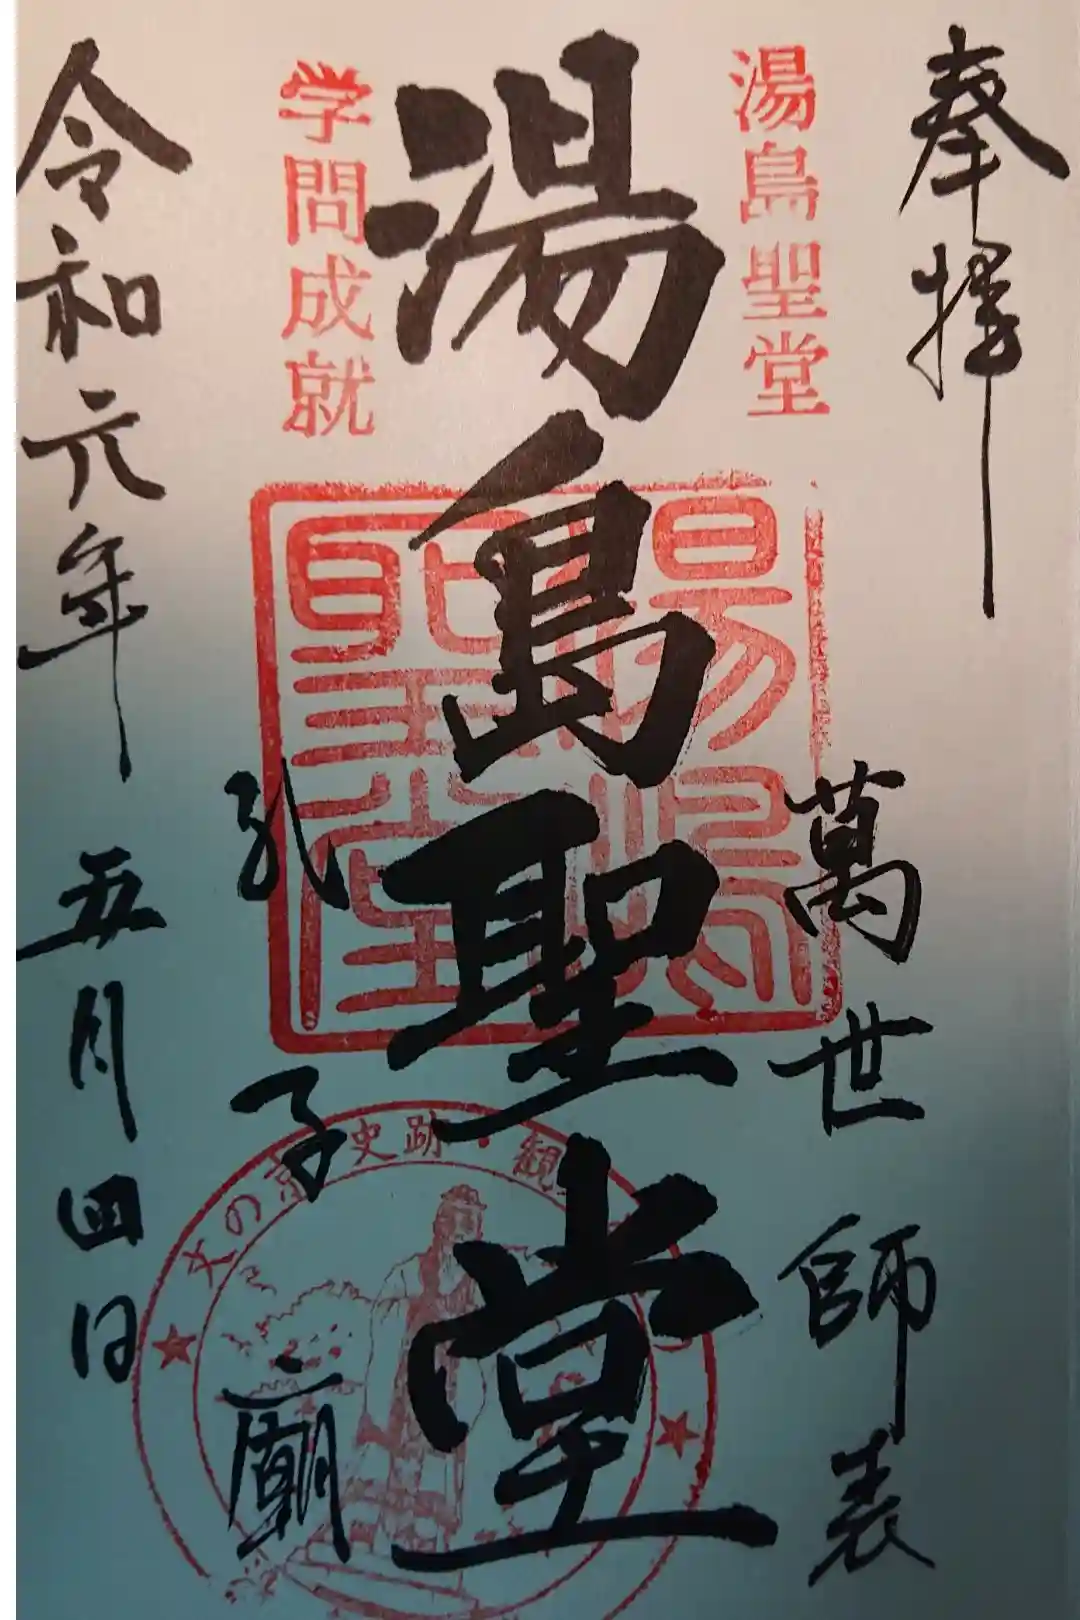 奉拝
萬世師表
湯島聖堂
湯島聖堂
湯島聖堂
学問成就
孔子廟
文の京 史跡・観
令和元年五月四日